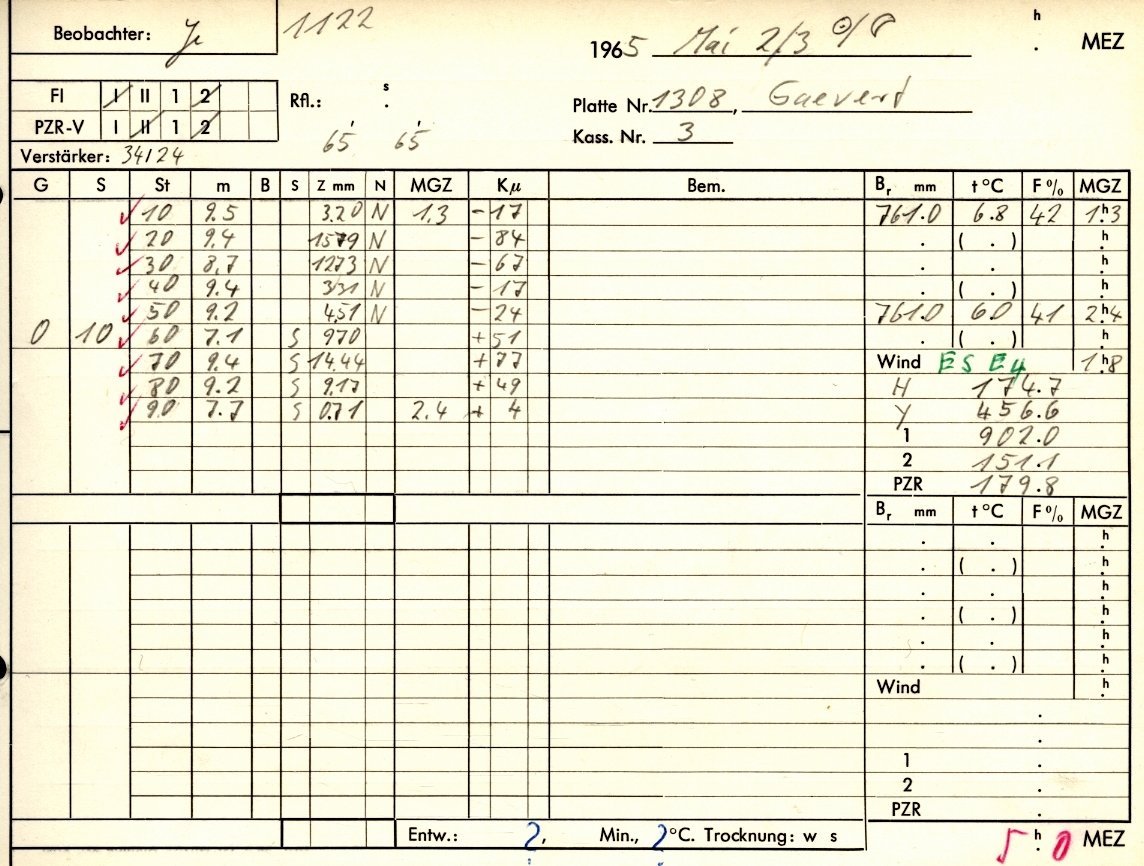 1122
Beobachter: 1965 Mai 2/3 h . MEZ
FI I II 1 2 Rfl.: s . Platte Nr. 1308, Gaevert
PZR-V I II 1 2 65 65 Kass. Nr. 3
Verstärker: 34/24
G S St m B S Z mm N MGZ Kµ Bem. Br mm t °C F % MGZ
10 9.5 3.20 N 1.3 - 17 761.0 6.8 42 1h.3
20 9.4 1579 N - 84 . ( . ) h .
30 8.7 1273 N - 67 . . h .
40 9.4 331 N - 17 . ( . ) h .
50 9.2 451 N - 24 761.0 6.0 41 2h.4
0 10 60 7.1 S 970 + 51 . ( . ) h .
70 9.4 S 14.44 + 77 Wind ESE4 1h.8
80 9.2 S 9.17 + 49 H 174.7
90 7.7 S 0.71 2.4 + 4 Y 456.6
1 902.0
2 151.1
PZR 179.8
Br mm t °C F % MGZ
. . h .
. ( . ) h .
. . h .
. ( . ) h .
. . h .
. ( . ) h .
Wind h .
.
.
1 .
2 .
PZR .
Entw.: 2, Min., 2 °C. Trocknung: w s 5h.0 MEZ